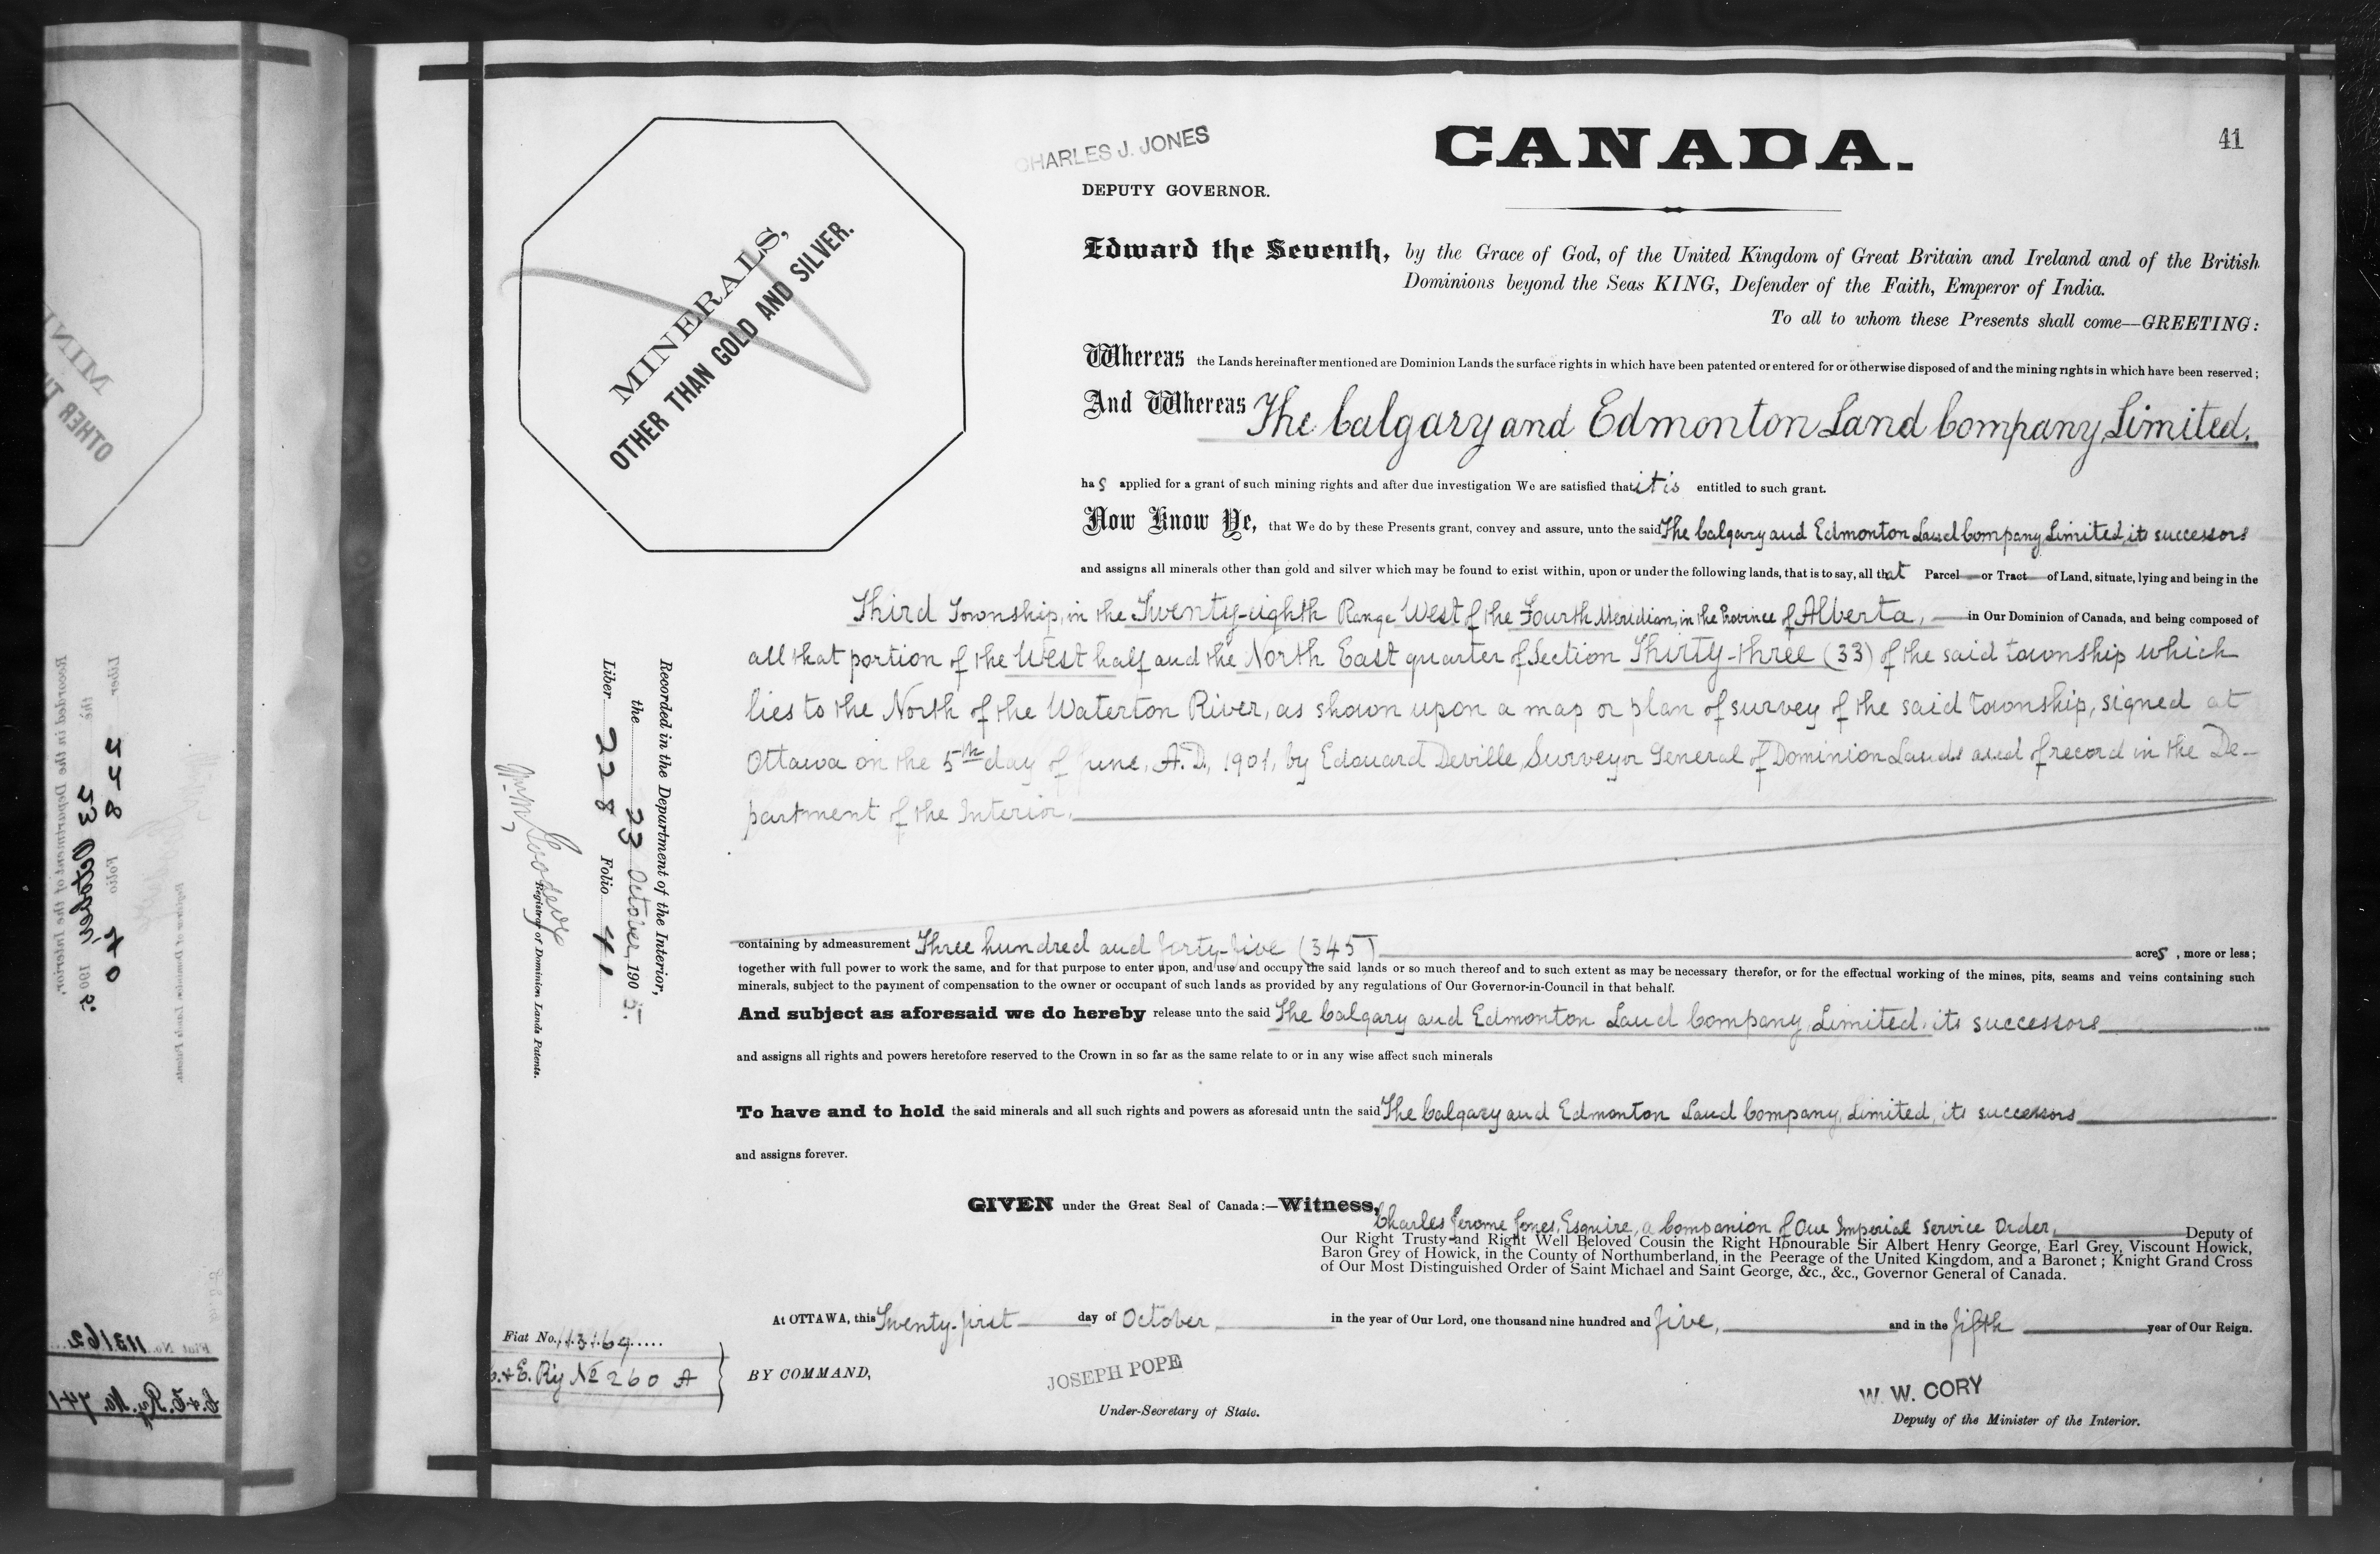 41
CHARLES J. JONES
CANADA.
DEPUTY GOVERNOR.
MINERALS,
OTHER THAN GOLD AND SILVER.
Edward the Seventh, by the Grace of God, of the United Kingdom of Great Britain and Ireland and of the British
Dominions beyond the Seas KING, Defender of the Faith, Emperor of India.
To all to whom these Presents shall come—GREETING:
Whereas the Lands hereinafter mentioned are Dominion Lands the surface rights in which have been patented or entered for or otherwise disposed of and the mining rights in which have been reserved;
And Whereas The Calgary and Edmonton Land Company, Limited.
has applied for a grant of such mining rights and after due investigation We are satisfied that it is entitled to such grant.
Now Know Ye, that We do by these Presents grant, convey and assure, unto the said The Calgary and Edmonton Land Company, Limited, its successors
and assigns all minerals other than gold and silver which may be found to exist within, upon or under the following lands, that is to say, all that Parcel or Tract of Land, situate, lying and being in the
Third Township, in the Twenty-eighth Range West of the Fourth Meridian, in the Province of Alberta, in Our Dominion of Canada, and being composed of
all that portion of the West half and the North East quarter of Section Thirty-three (33) of the said township which
lies to the North of the Waterton River, as shown upon a map or plan of survey of the said township, signed at
Ottawa on the 5th day of June, A.D., 1901, by Edouard Deville, Surveyor General of Dominion Lands and of record in the De-
partment of the Interior,
containing by admeasurement Three hundred and forty-five (345) acres, more or less;
together with full power to work the same, and for that purpose to enter upon, and use and occupy the said lands or so much thereof and to such extent as may be necessary therefor, or for the effectual working of the mines, pits, seams and veins containing such
minerals, subject to the payment of compensation to the owner or occupant of such lands as provided by any regulations of Our Governor-in-Council in that behalf.
And subject as aforesaid we do hereby release unto the said The Calgary and Edmonton Land Company, Limited, its successors
and assigns all rights and powers heretofore reserved to the Crown in so far as the same relate to or in any wise affect such minerals
To have and to hold the said minerals and all such rights and powers as aforesaid untn the said The Calgary and Edmonton Land Company, Limited, its successors
and assigns forever.
GIVEN under the Great Seal of Canada:—Witness,
Charles Jerome Jones, Esquire, a Companion of Our Imperial Service Order, Deputy of
Our Right Trusty and Right Well Beloved Cousin the Right Honourable Sir Albert Henry George, Earl Grey, Viscount Howick,
Baron Grey of Howick, in the County of Northumberland, in the Peerage of the United Kingdom, and a Baronet; Knight Grand Cross
of Our Most Distinguished Order of Saint Michael and Saint George, &c., &c., Governor General of Canada.
At OTTAWA, this Twenty-first day of October, in the year of Our Lord, one thousand nine hundred and five, and in the fifth year of Our Reign.
BY COMMAND,
JOSEPH POPE
Under-Secretary of State.
W. W. CORY
Deputy of the Minister of the Interior.
Recorded in the Department of the Interior,
the 23 October, 1905.
Liber 228 Folio 41
Registrar of Dominion Lands Patents.
Fiat No. 113164
C. & E. Ry No 260 A
MINE
OTHER TH
Recorded in the Department of the Interior,
the 23 October 1905.
Liber 228 Folio 40
Registrar of Dominion Lands Patents.
Fiat No. 113162
C. & E. Ry. No. 741